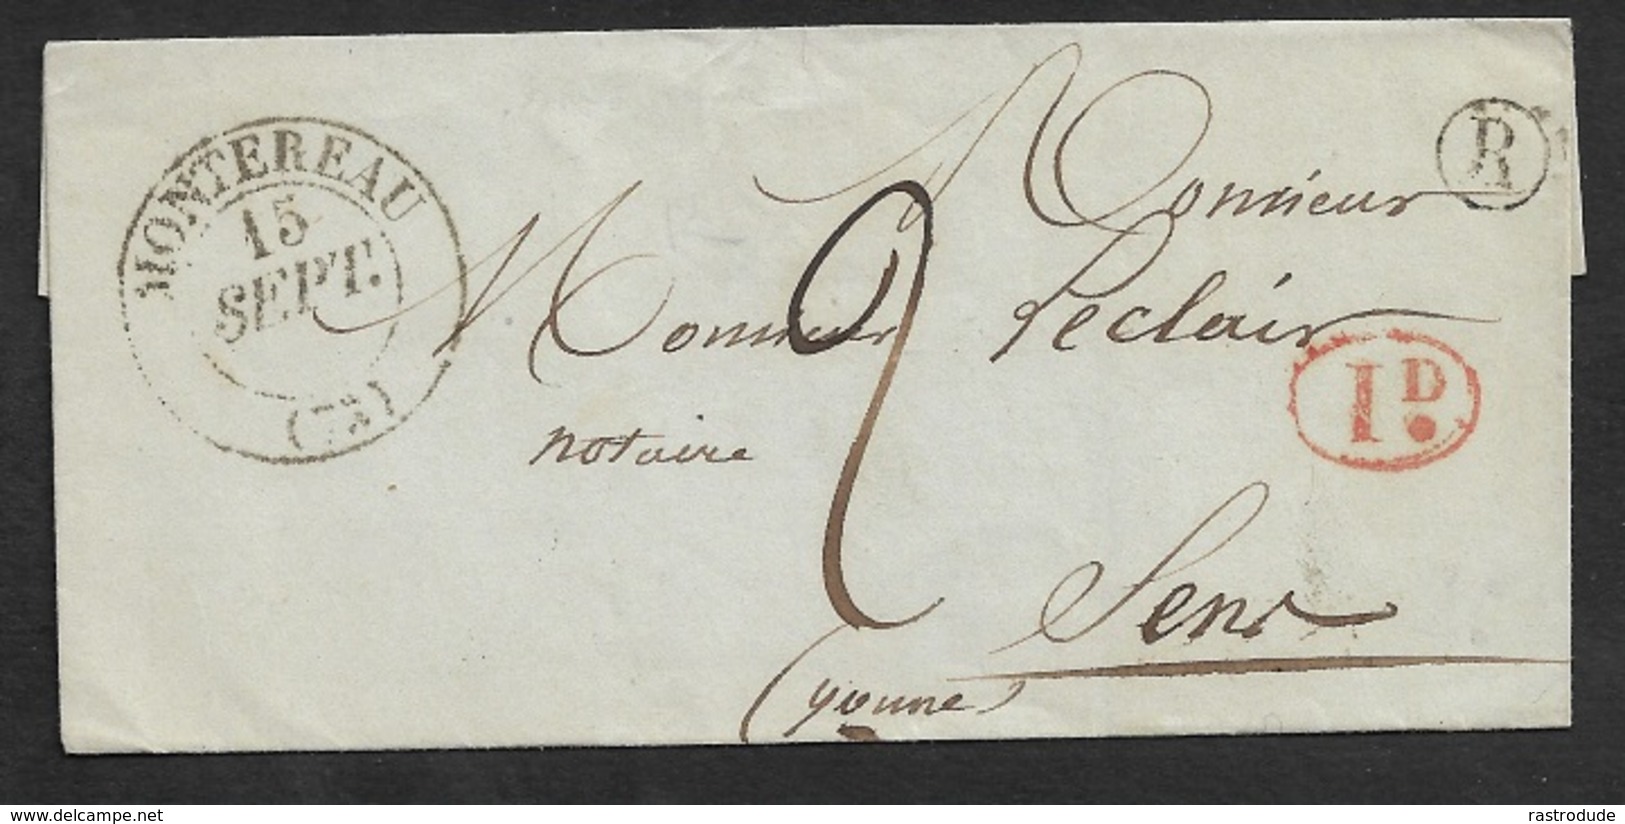 MONTEREAU
15
SEPT.
(73)
R
Monsieur
Monsieur Leclair
notaire
2
1D.
Sens
(yonne)
© delcampe.net
rastrodude